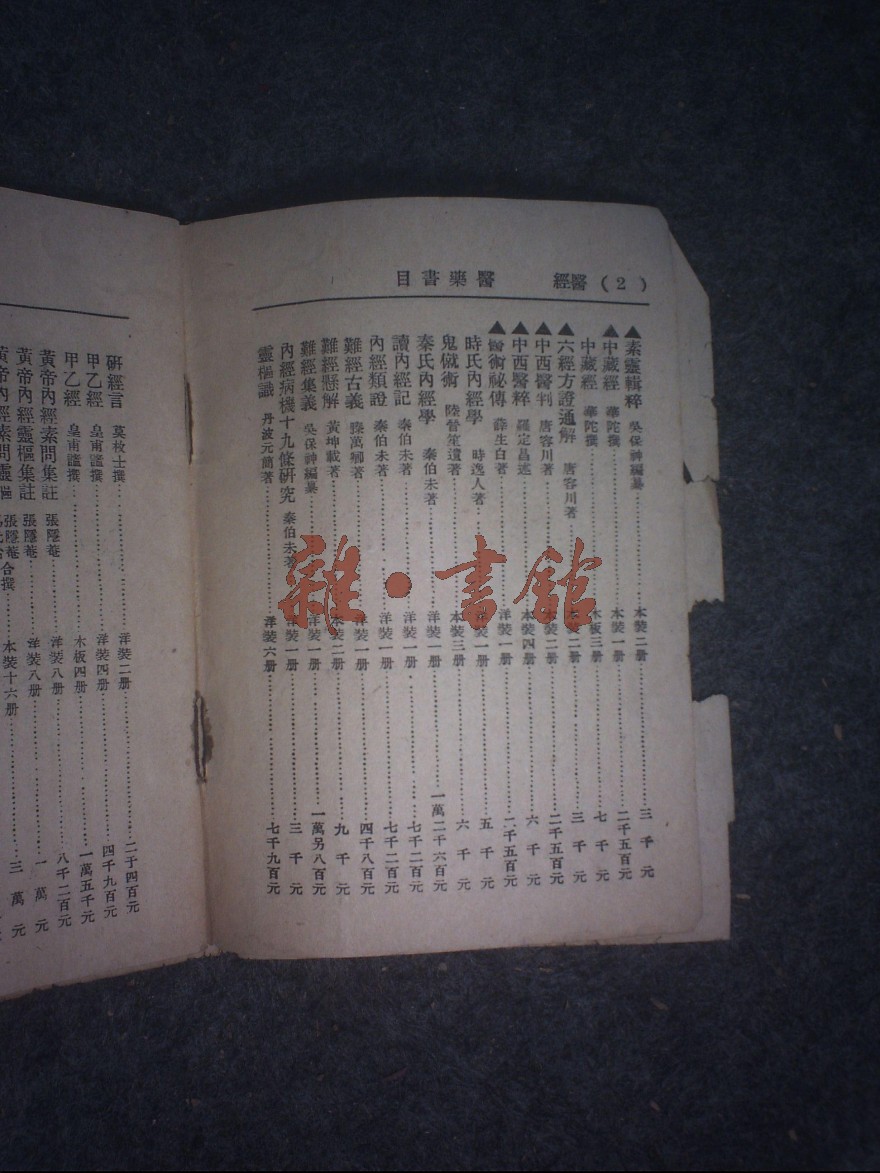 (2) 醫經 醫藥書目
▲素靈輯粹 吳保神編纂 本裝二册 三千元
▲中藏經 華陀撰 本裝一册 二千五百元
中藏經 華陀撰 木板三册 七千元
▲六經方證通解 唐容川著 本裝二册 三千元
▲中西醫判 唐容川著 本裝二册 二千五百元
▲中西醫粹 羅定昌述 本裝四册 六千元
▲醫術祕傳 薛生白著 洋裝一册 二千五百元
時氏內經學 時逸人著 洋裝一册 五千元
鬼儆術 陸晉笙遺著 本裝三册 六千元
秦氏內經學 秦伯未著 洋裝一册 一萬二千六百元
讀內經記 秦伯未著 洋裝一册 七千二百元
內經類證 秦伯未著 洋裝一册 七千二百元
難經古義 滕萬卿著 洋裝一册 四千八百元
難經懸解 黃坤載著 本裝二册 九千元
難經集義 吳保神編纂 洋裝一册 一萬另八百元
內經病機十九條硏究 秦伯未著 洋裝一册 三千元
靈樞識 丹波元簡著 洋裝六册 七千九百元
硏經言 莫枚士撰 洋裝二册 二千四百元
甲乙經 皇甫謐撰 洋裝四册 四千九百元
甲乙經 皇甫謐撰 木板四册 一萬五千元
黃帝內經素問集註 張隱菴 洋裝八册 八千二百元
黃帝內經靈樞集註 張隱菴 洋裝八册 一萬元
黃帝內經素問靈樞 張隱菴 合撰 本裝十六册 三萬元
雜·書館